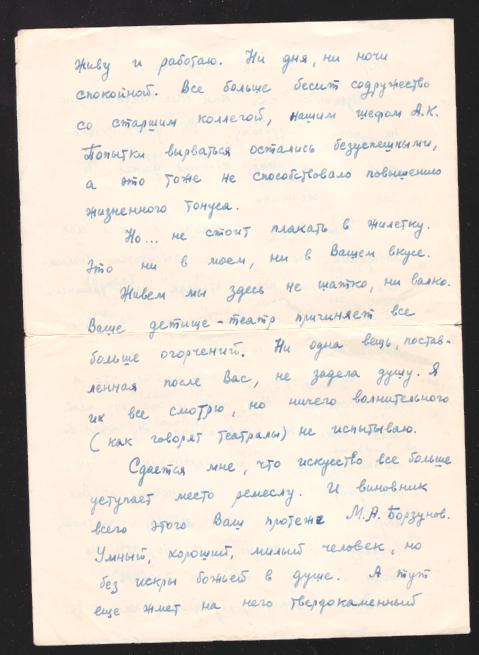 живу и работаю. Ни дня, ни ночи
спокойной. Все больше бесит содружество
со старшим коллегой, нашим шефом А.К.
Попытки вырваться остались безуспешными,
а это тоже не способствовало повышению
жизненного тонуса.
Но... не стоит плакать в жилетку.
Это ни в моем, ни в Вашем вкусе.
Живем мы здесь не шатко, ни валко.
Ваше детище - театр причиняет все
больше огорчений. Ни одна вещь, постав-
ленная после Вас, не задела душу. Я
их все смотрю, но ничего волнительного
(как говорят театралы) не испытываю.
Сдается мне, что искусство все больше
уступает место ремеслу. И виновник
всего этого Ваш протеже М.А. Борзунов.
Умный, хороший, милый человек, но
без искры божьей в душе. А тут
еще жмет на него твердокаменный